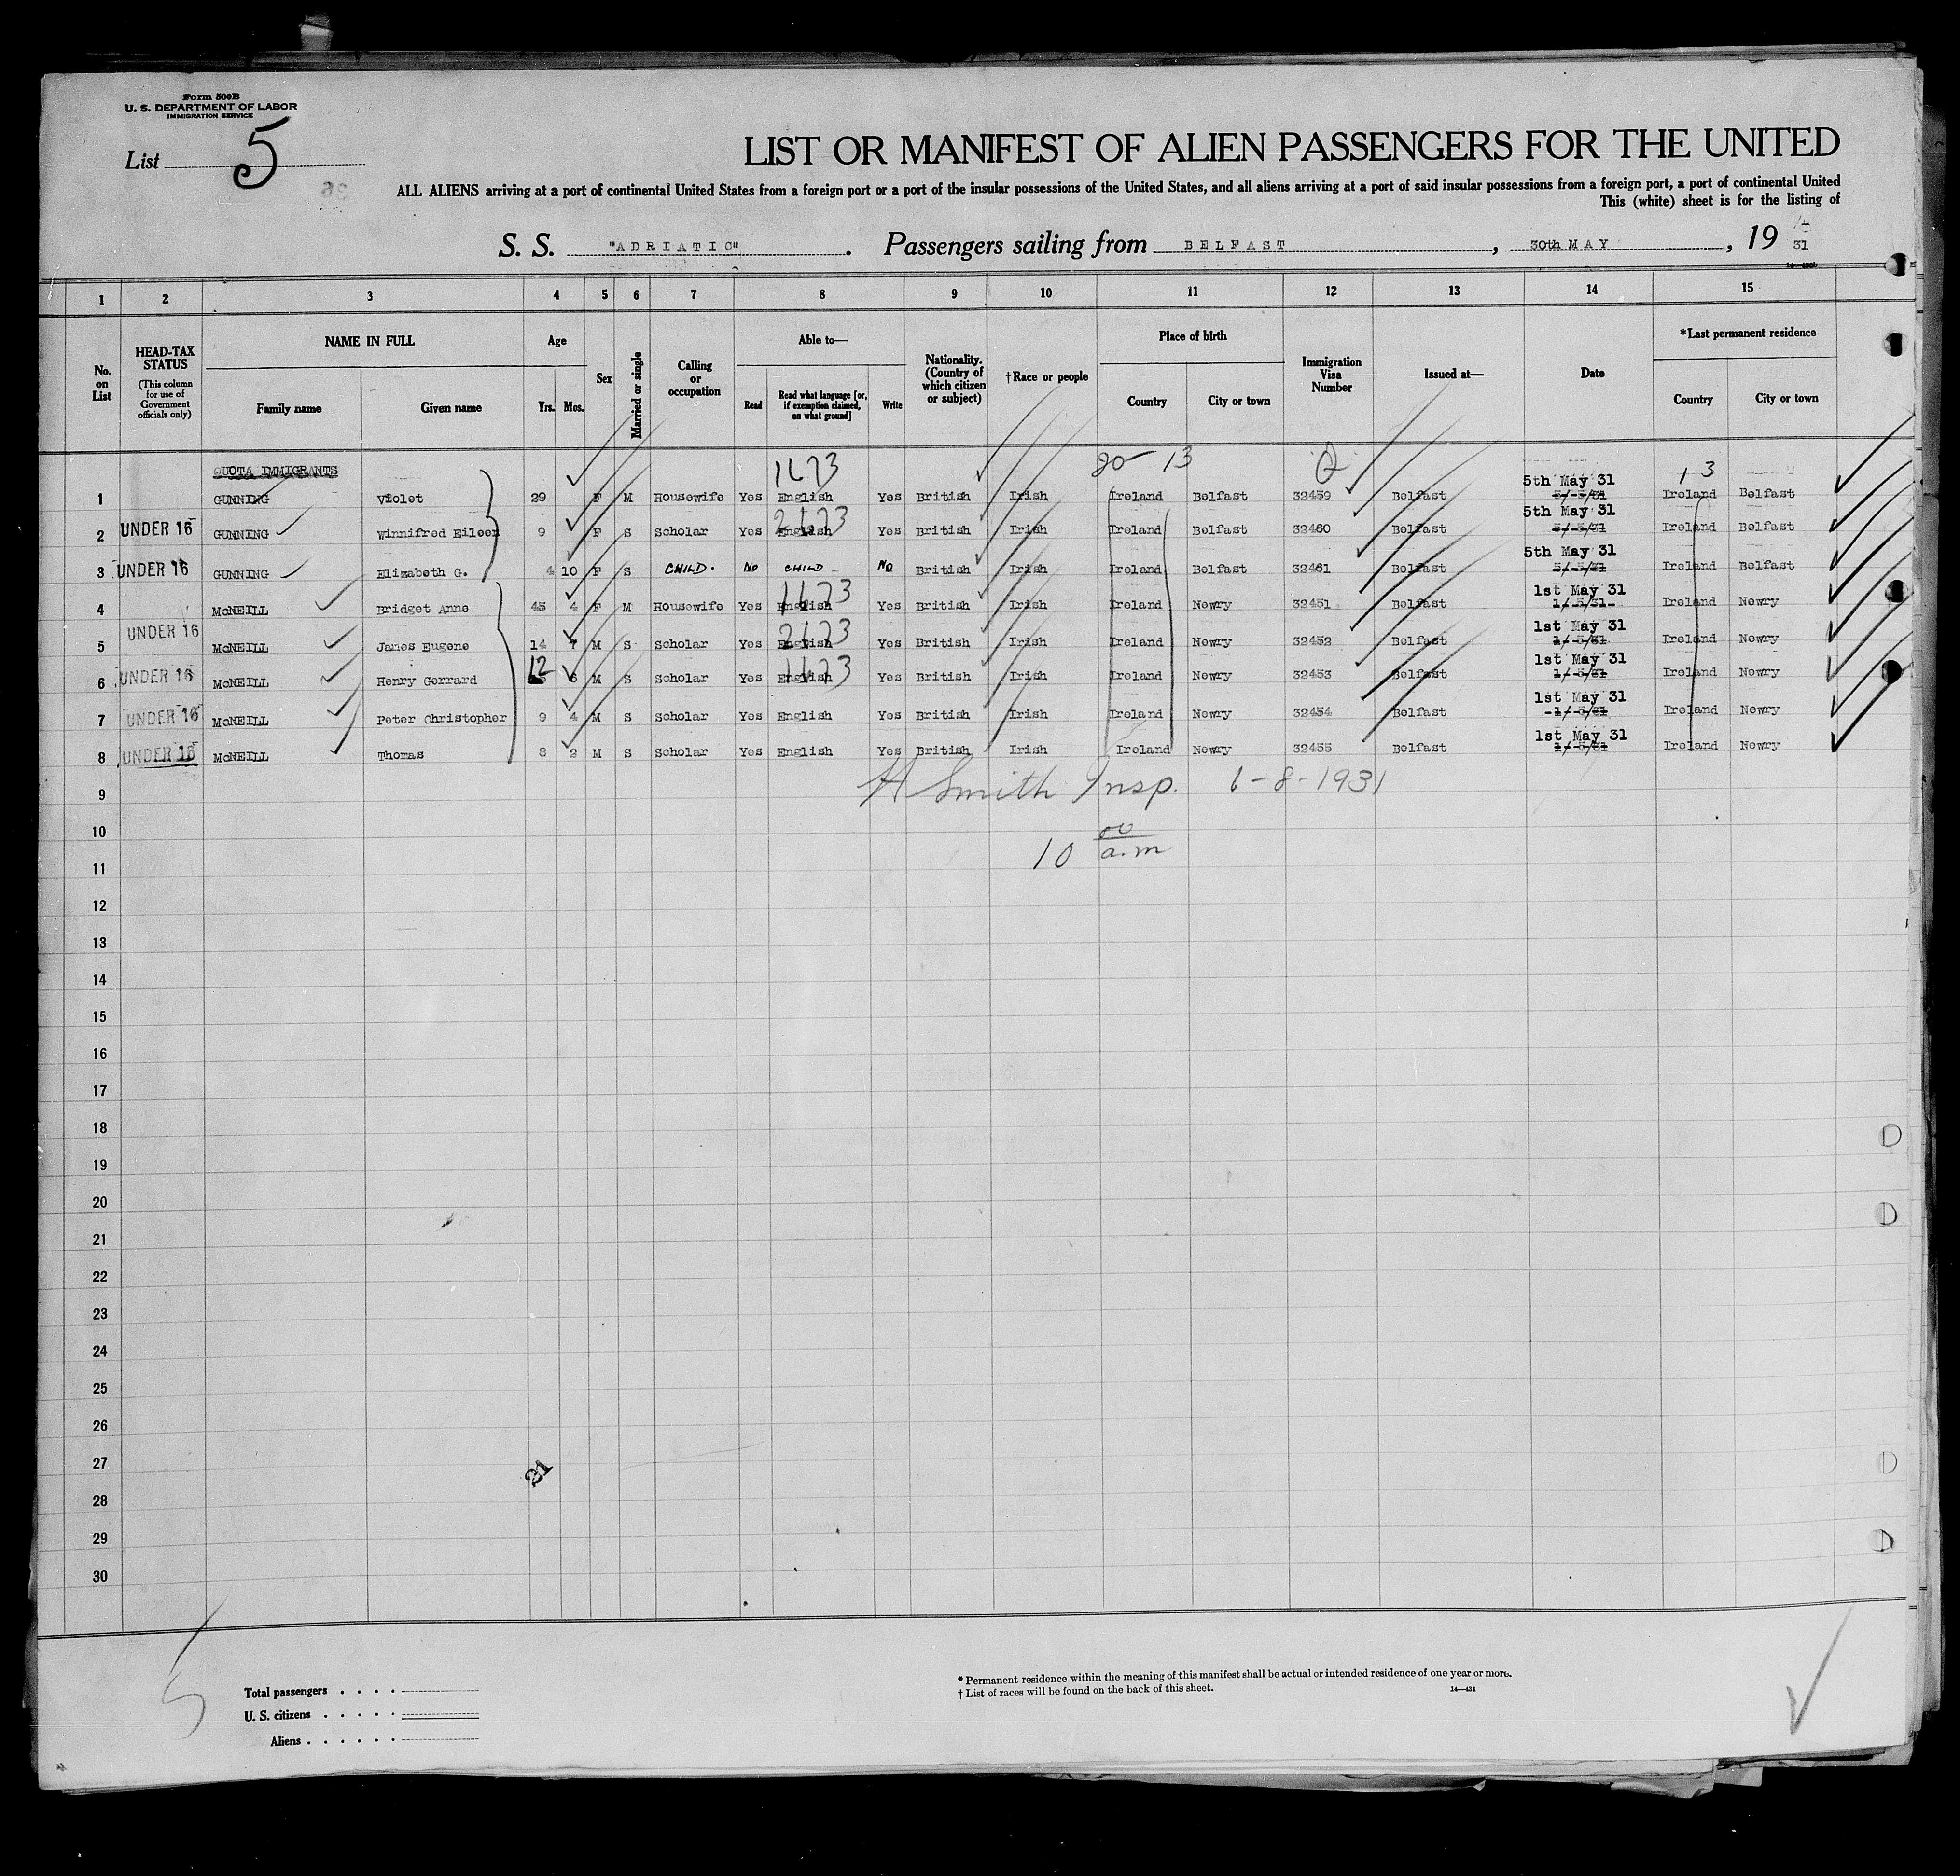 Form 500B
U. S. DEPARTMENT OF LABOR
IMMIGRATION SERVICE
List 5
LIST OR MANIFEST OF ALIEN PASSENGERS FOR THE UNITED
ALL ALIENS arriving at a port of continental United States from a foreign port or a port of the insular possessions of the United States, and all aliens arriving at a port of said insular possessions from a foreign port, a port of continental United
This (white) sheet is for the listing of
S. S. "ADRIATIC". Passengers sailing from BELFAST, 30th MAY, 19 31
1 2 3 4 5 6 7 8 9 10 11 12 13 14 15
No. on List
HEAD-TAX STATUS
(This column for use of Government officials only)
NAME IN FULL
Family name Given name
Age
Yrs. Mos.
Sex
Married or single
Calling or occupation
Able to—
Read
Read what language [or, if exemption claimed, on what ground]
Write
Nationality. (Country of which citizen or subject)
†Race or people
Place of birth
Country City or town
Immigration Visa Number
Issued at—
Date
*Last permanent residence
Country City or town
QUOTA IMMIGRANTS 1673 20-13 Q 13
1 GUNNING Violet 29 F M Housewife Yes English Yes British Irish Ireland Belfast 32459 Belfast 5th May 31 5/-5/31 Ireland Belfast
2 UNDER 16 GUNNING Winnifred Eileen 9 F S Scholar Yes English Yes British Irish Ireland Belfast 32460 Belfast 5th May 31 5/-5/31 Ireland Belfast
3 UNDER 16 GUNNING Elizabeth G. 4 10 F S CHILD. No CHILD - No British Irish Ireland Belfast 32461 Belfast 5th May 31 5/-5/31 Ireland Belfast
4 McNEILL Bridget Anne 45 4 F M Housewife Yes English Yes British Irish Ireland Newry 32451 Belfast 1st May 31 1/-5/31 Ireland Newry
5 UNDER 16 McNEILL James Eugene 14 7 M S Scholar Yes English Yes British Irish Ireland Newry 32452 Belfast 1st May 31 1/-5/31 Ireland Newry
6 UNDER 16 McNEILL Henry Gerrard 12 M S Scholar Yes English Yes British Irish Ireland Newry 32453 Belfast 1st May 31 1/-5/31 Ireland Newry
7 UNDER 16 McNEILL Peter Christopher 9 4 M S Scholar Yes English Yes British Irish Ireland Newry 32454 Belfast 1st May 31 1/-5/31 Ireland Newry
8 UNDER 16 McNEILL Thomas 8 2 M S Scholar Yes English Yes British Irish Ireland Newry 32455 Belfast 1st May 31 1/-5/31 Ireland Newry
9 H Smith Insp. 6-8-1931
10
10 00 a.m.
11
12
13
14
15
16
17
18
19
20
21
22
23
24
25
26
27
21
28
29
30
Total passengers . . . .
U. S. citizens . . . . .
Aliens . . . . . .
* Permanent residence within the meaning of this manifest shall be actual or intended residence of one year or more.
† List of races will be found on the back of this sheet. 14—431